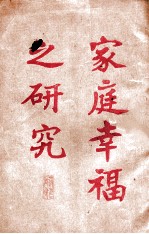 家庭幸福
之研究